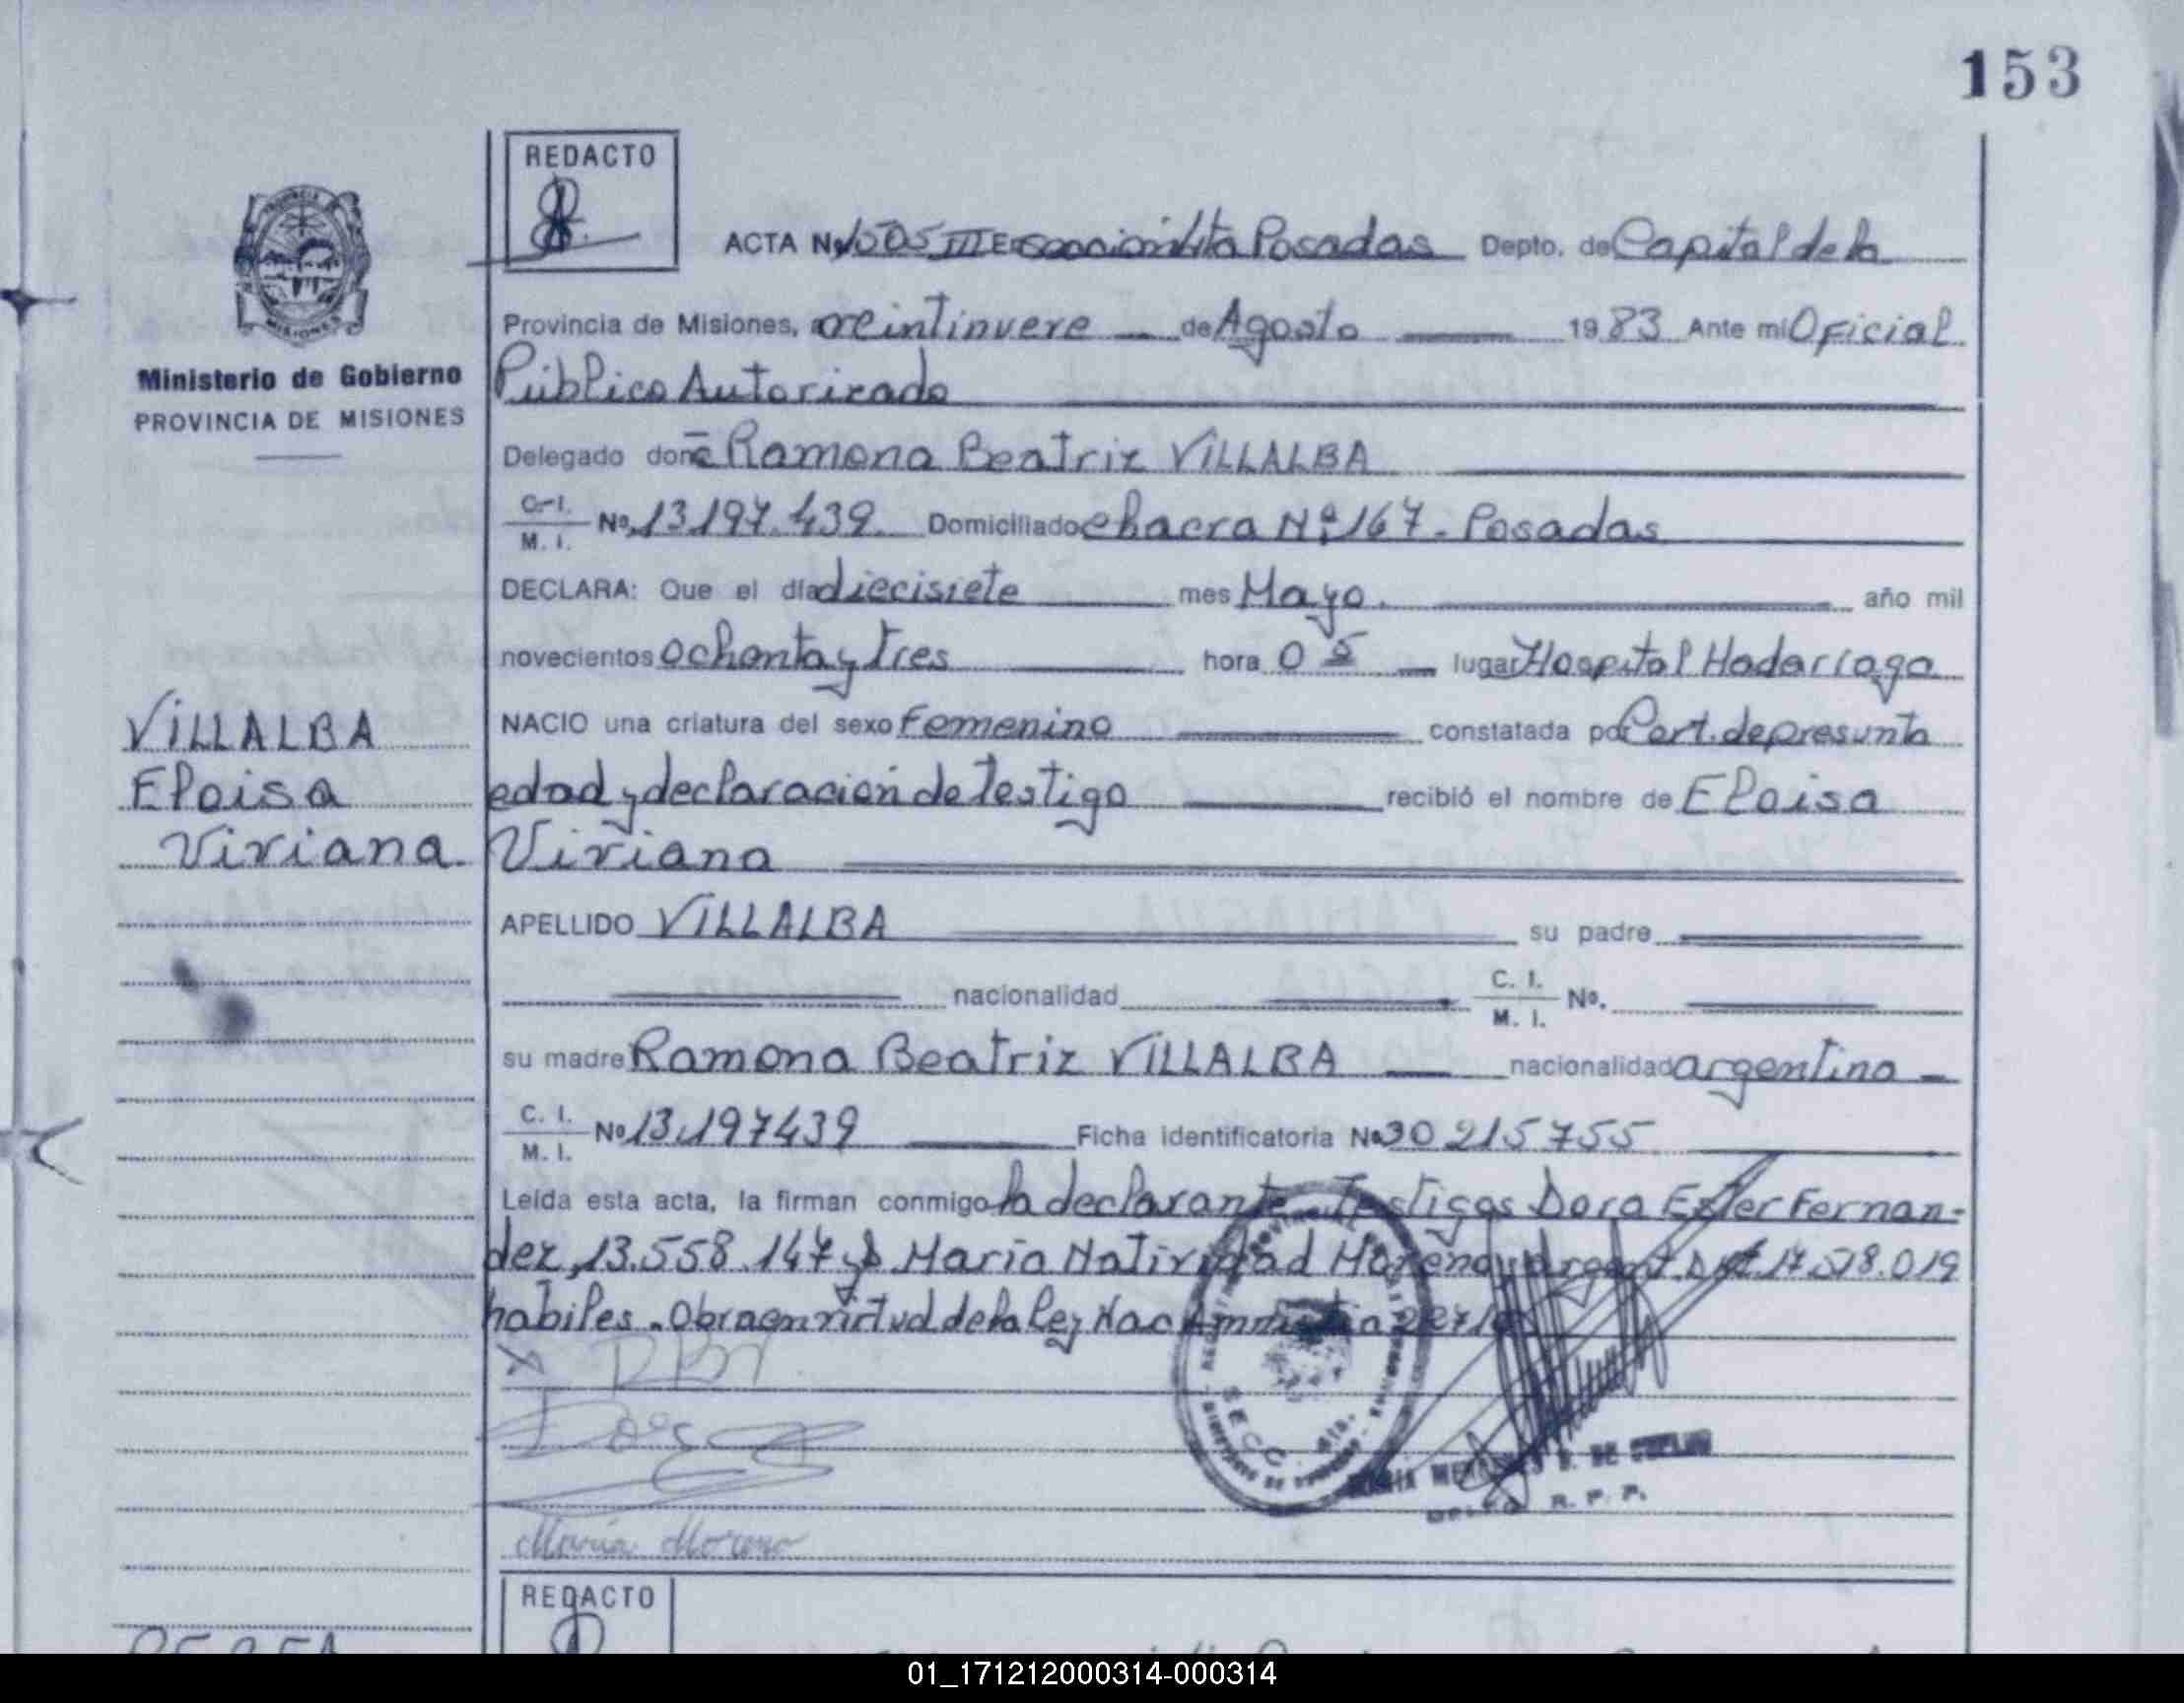 153
REDACTO
ACTA No 1505 III Posadas Depto. de Capital de la
Provincia de Misiones, a veintinueve de Agosto 1983 Ante mi Oficial
Ministerio de Gobierno
PROVINCIA DE MISIONES
Público Autorizado
Delegado doña Ramona Beatriz VILLALBA
C. I. M. I. No. 13.197.439. Domiciliado chacra Nº 167 - Posadas
DECLARA: Que el día diecisiete mes Mayo. año mil
novecientos ochenta y tres hora 05 lugar Hospital Madariaga
NACIO una criatura del sexo Femenino constatada por Cert. de presunta
VILLALBA
Eloisa
Viviana.
edad y declaración de testigo recibió el nombre de Eloisa
Viviana
APELLIDO VILLALBA su padre
nacionalidad C. I. M. I. No.
su madre Ramona Beatriz VILLALBA nacionalidad argentina
C. I. M. I. No 13.197439 Ficha identificatoria No 30 215755
Leída esta acta, la firman conmigo la declarante Testigos Dora Ester Fernan-
dez, 13.558.147 y María Natividad Moreno, argent. 17.578.019
habiles. Obra en virtud de la Ley Nac Amnistia
RBV
Dora
María Moreno
SECC. 4ta.
R. P. P.
REDACTO
01_171212000314-000314